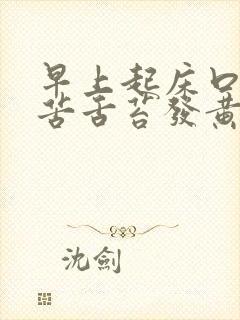 早上起床口
苦舌苔發黃
沈劍